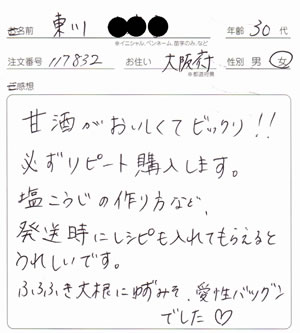 お名前 東川 年齢 30代
※イニシャル、ペンネーム、苗字のみ、など
注文番号 117832 お住い 大阪府 性別 男 女
※都道府県
ご感想
甘酒がおいしくてビックリ!!
必ずリピート購入します。
塩こうじの作り方など、
発送時にレシピも入れてもらえると
うれしいです。
ふろふき大根にゆずみそ、愛性バツグン
でした♡